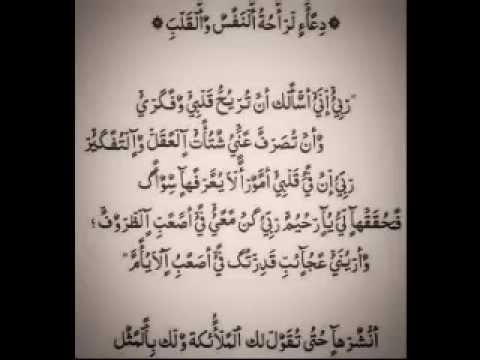 ۞ دعاء لراحة النفس والقلب ۞
"ربي إني أسألك أن تريح قلبي وفكري
وأن تصرف عني شتات العقل والتفكير
ربي إن في قلبي أموراً لا يعرفها سواك
فحققها لي يا رحيم ربي كن معي في أصعب الظروف؛
وأريني عجائب قدرتك في أصعب الأيام"
انشرها حتى تقول لك الملائكة ولك بالمثل